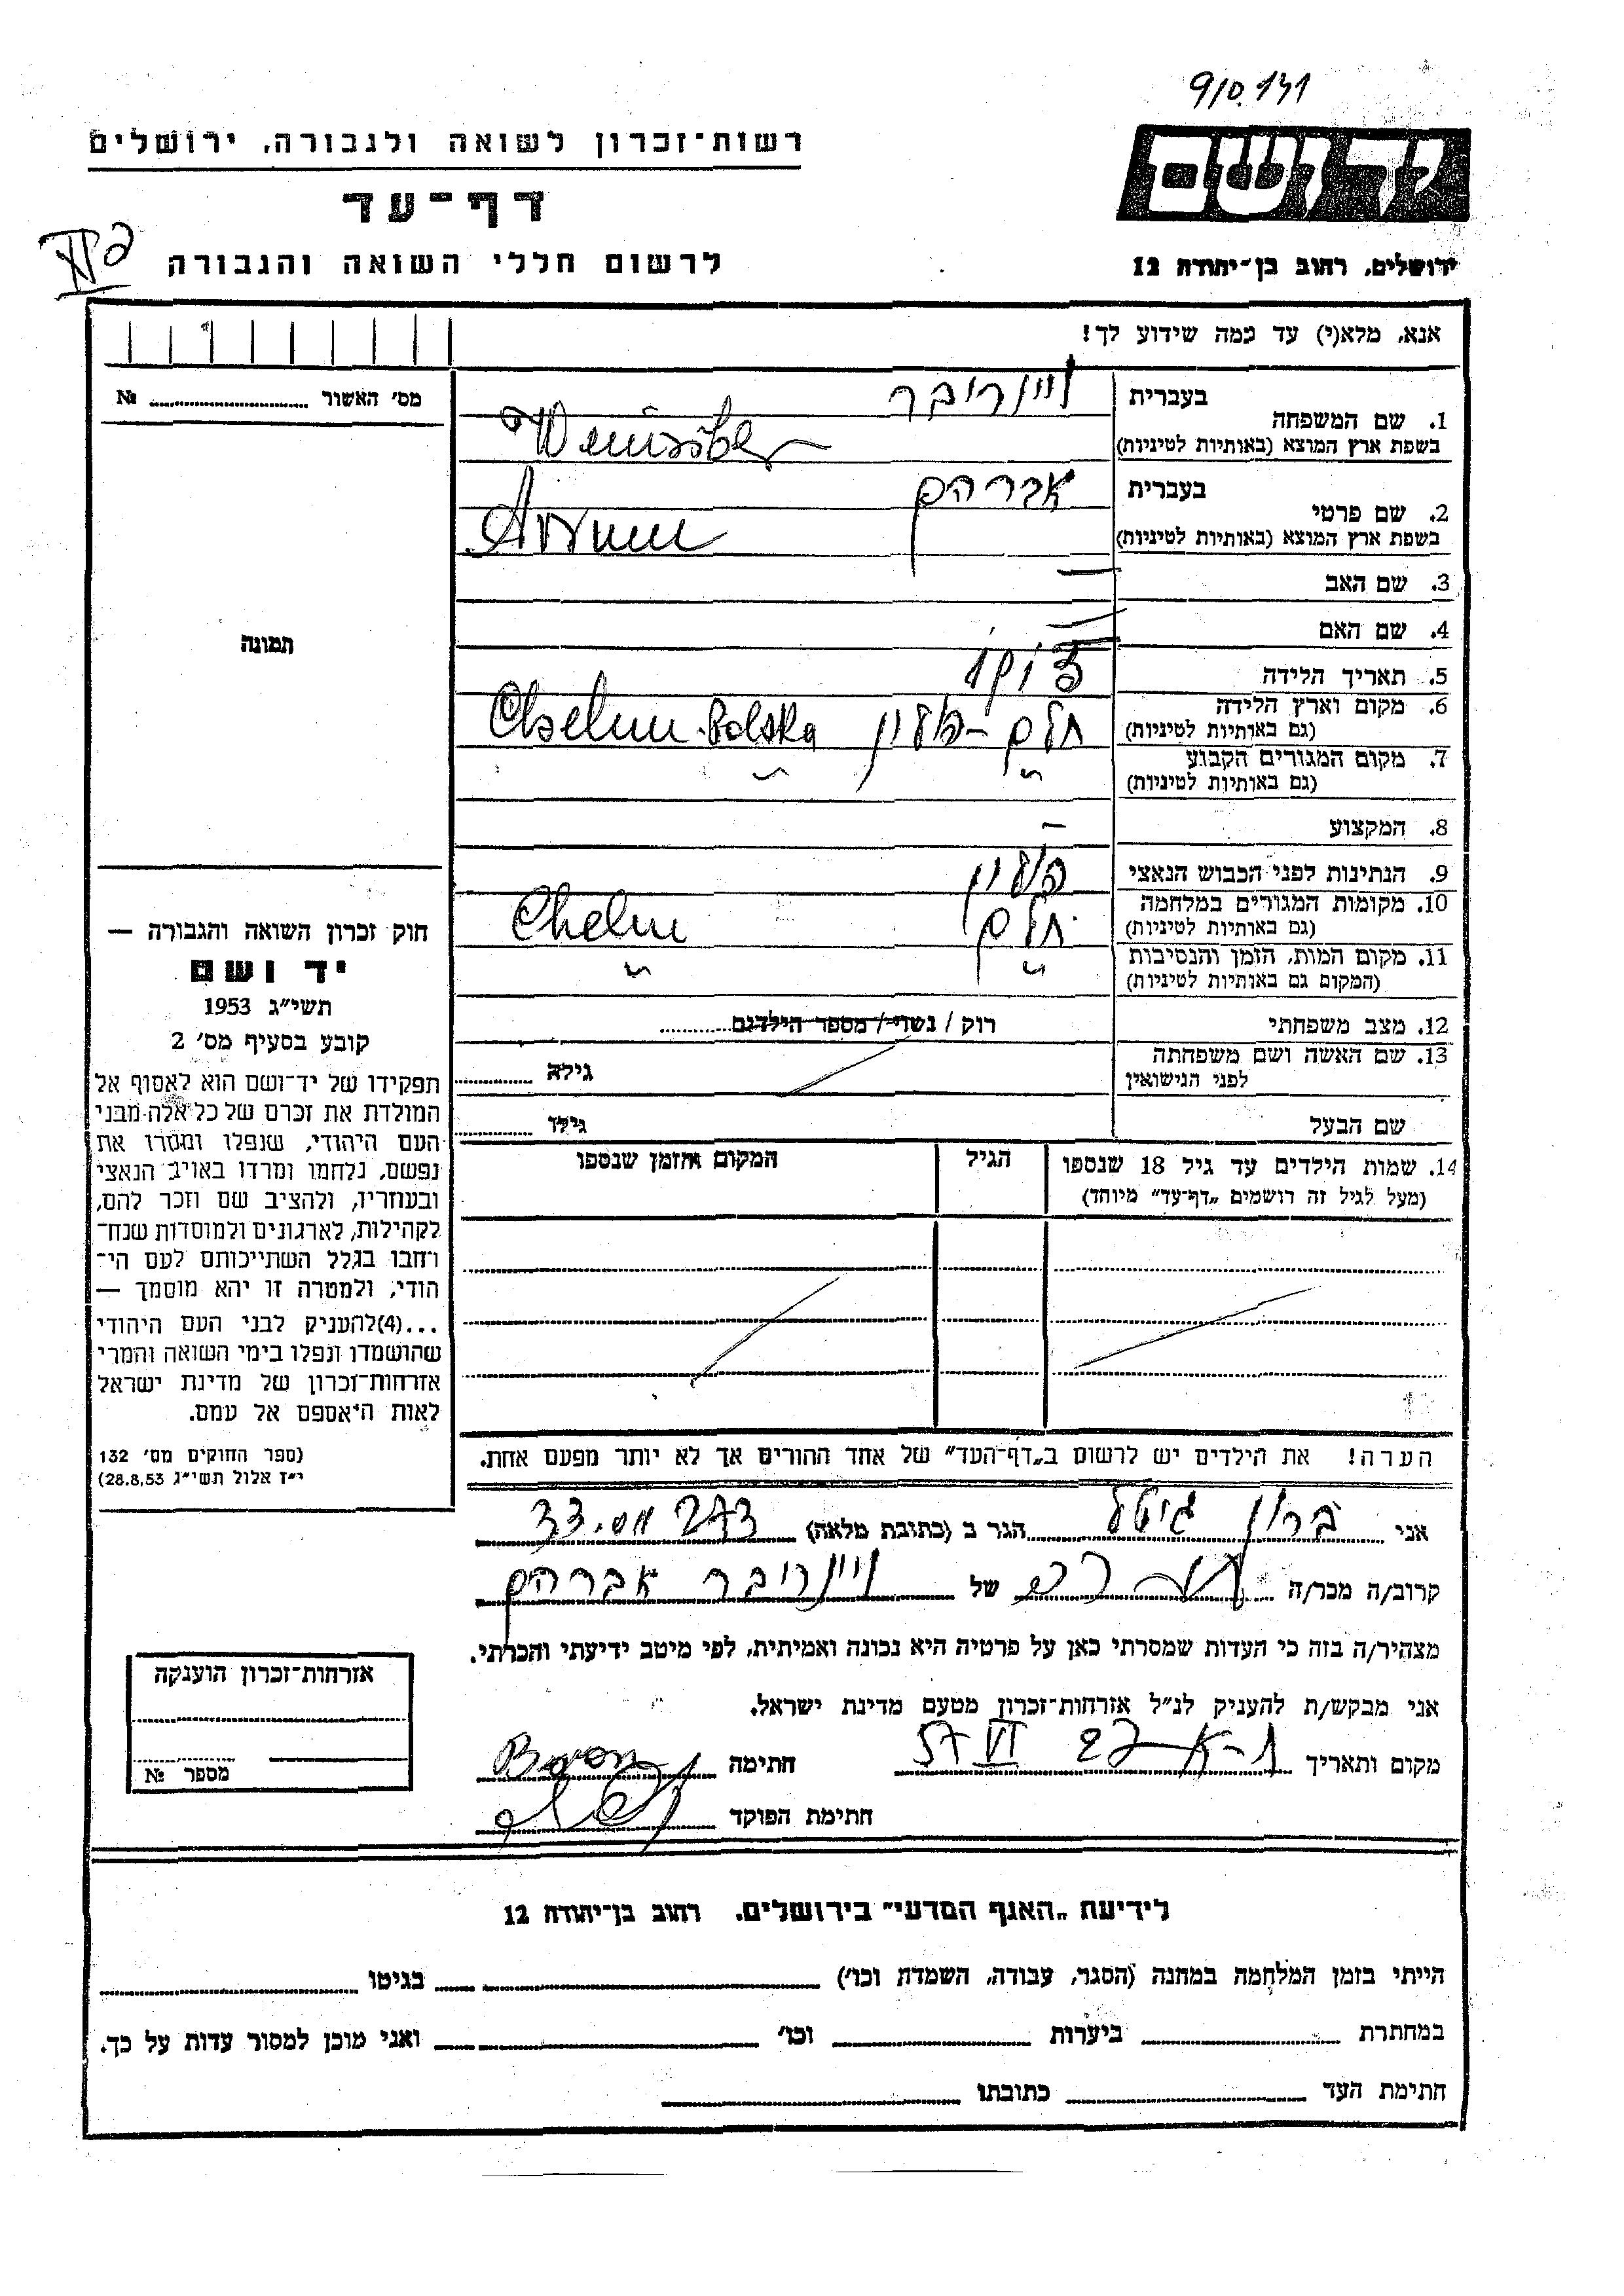 910.141
רשות־זכרון לשואה ולגבורה, ירושלים
דף־עד
לרשום חללי השואה והגבורה
ידושם
ירושלים, רחוב בן־יהודה 12
אנא, מלא(י) עד כמה שידוע לך!
מס׳ האשור № 
1. שם המשפחה
בעברית
ויינריבר
בשפת ארץ המוצא (באותיות לטיניות)
2. שם פרטי
בעברית
אברהם
בשפת ארץ המוצא (באותיות לטיניות)
3. שם האב –
4. שם האם –
5. תאריך הלידה
6. מקום וארץ הלידה
(גם באותיות לטיניות)
חלם – פולין Chelm - Polska
7. מקום המגורים הקבוע
(גם באותיות לטיניות)
8. המקצוע –
9. הנתינות לפני הכבוש הנאצי פולין
10. מקומות המגורים במלחמה
(גם באותיות לטיניות)
חלם Chelm
11. מקום המות, הזמן והנסיבות
(המקום גם באותיות לטיניות)
12. מצב משפחתי רוק / נשוי / מספר הילדים
13. שם האשה ושם משפחתה
לפני הנישואין
גילה
שם הבעל גילו
14. שמות הילדים עד גיל 18 שנספו
(מעל לגיל זה רושמים „דף־עד” מיוחד)
הגיל
המקום והזמן שנספו
הערה! את הילדים יש לרשום ב„דף־העד” של אחד ההורים אך לא יותר מפעם אחת.
תמונה
חוק זכרון השואה והגבורה —
יד ושם
תשי״ג 1953
קובע בסעיף מס׳ 2
תפקידו של יד־ושם הוא לאסוף אל
המולדת את זכרם של כל אלה מבני
העם היהודי, שנפלו ומסרו את
נפשם, נלחמו ומרדו באויב הנאצי
ובעוזריו, ולהציב שם וזכר להם,
לקהילות, לארגונים ולמוסדות שנח־
רחבו בגלל השתייכותם לעם הי־
הודי, ולמטרה זו יהא מוסמך —
...(4)להעניק לבני העם היהודי
שהושמדו ונפלו בימי השואה והמרי
אזרחות־זכרון של מדינת ישראל
לאות היאספם אל עמם.
(ספר החוקים מס׳ 132
י״ז אלול תשי״ג 28.8.53)
אני ברון גיטל הגר ב (כתובת מלאה)
קרוב/ה מכר/ה של ויינריבר אברהם
מצהיר/ה בזה כי העדות שמסרתי כאן על פרטיה היא נכונה ואמיתית, לפי מיטב ידיעתי והכרתי.
אני מבקש/ת להעניק לנ״ל אזרחות־זכרון מטעם מדינת ישראל.
מקום ותאריך 22 VI 57 חתימה Baron
חתימת הפוקד
אזרחות־זכרון הוענקה
מספר №
לידיעת „האגף המדעי” בירושלים, רחוב בן־יהודה 12
הייתי בזמן המלחמה במחנה (הסגר, עבודה, השמדה וכו׳) בגיטו
במחתרת ביערות וכו׳ ואני מוכן למסור עדות על כך.
חתימת העד כתובתו